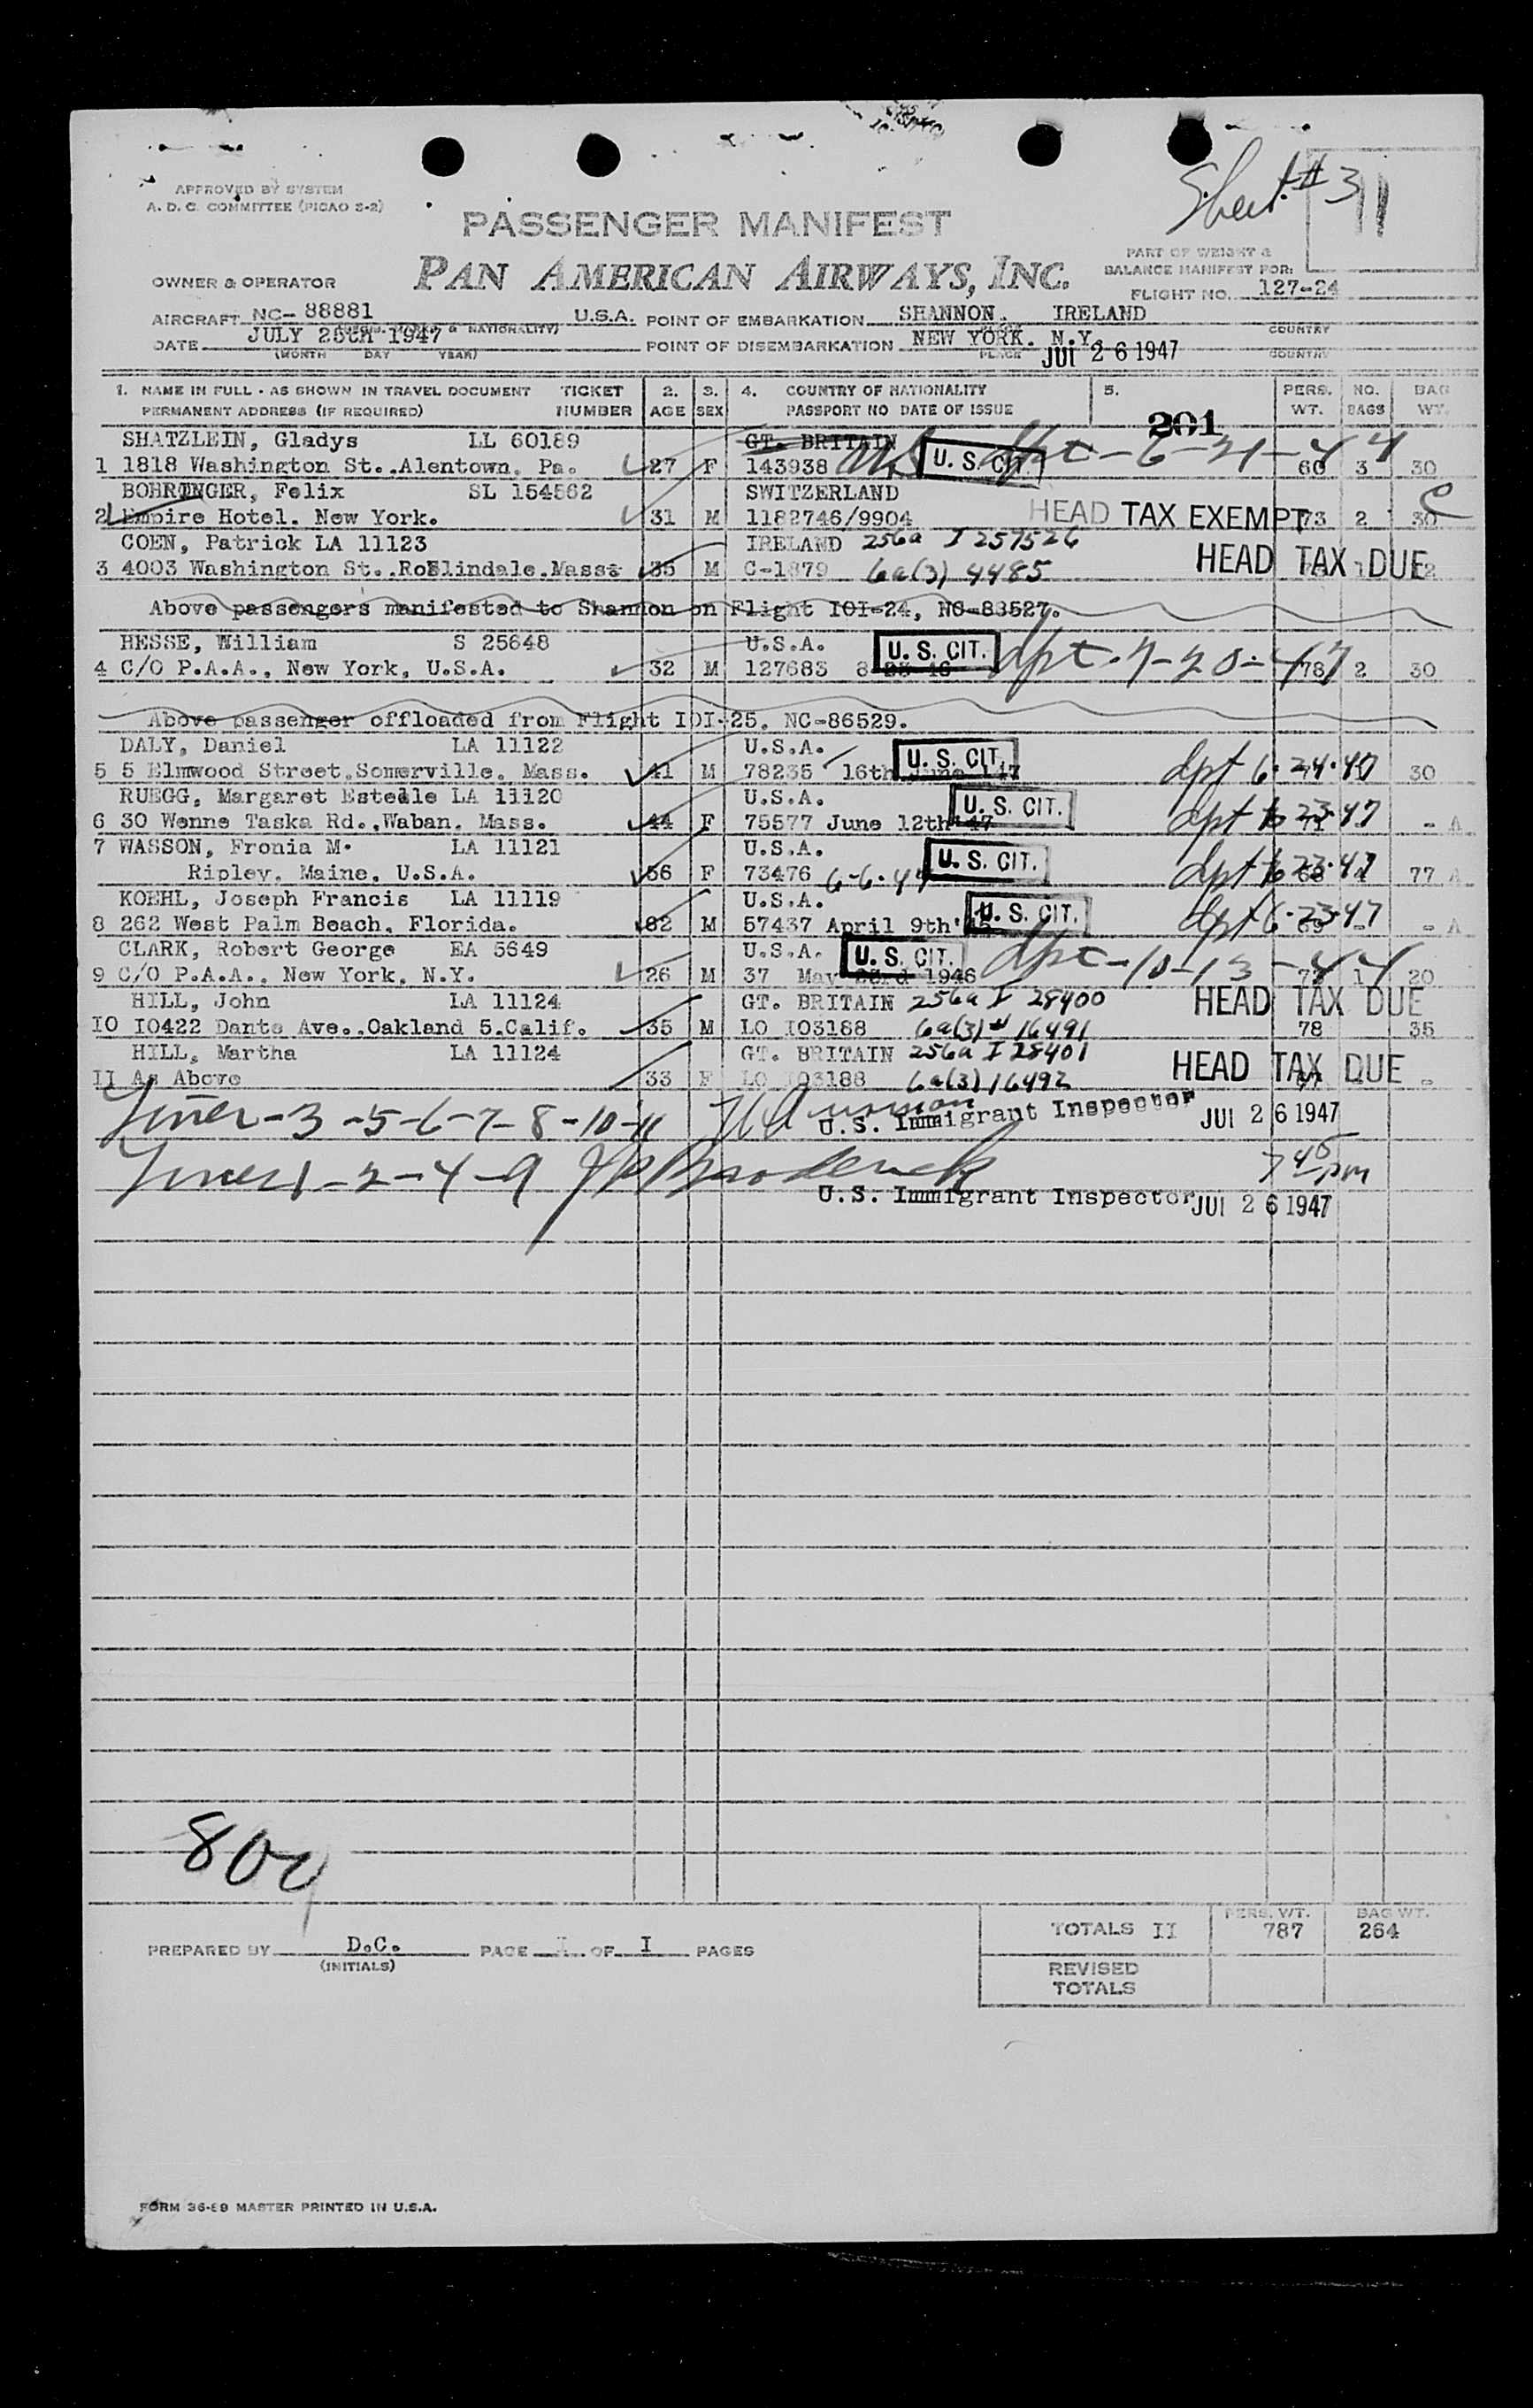 Sheet #3
APPROVED BY SYSTEM
A. D. C. COMMITTEE (PICAO S-2)
PASSENGER MANIFEST
PAN AMERICAN AIRWAYS, INC.
PART OF WEIGHT &
BALANCE MANIFEST FOR:
OWNER & OPERATOR
FLIGHT NO. 127-24
AIRCRAFT NC- 88881 U.S.A. POINT OF EMBARKATION SHANNON. IRELAND
DATE JULY 25th 1947 POINT OF DISEMBARKATION NEW YORK. N.Y.
(MONTH DAY YEAR) PLACE COUNTRY
JUL 26 1947
1. NAME IN FULL - AS SHOWN IN TRAVEL DOCUMENT TICKET 2. 3. 4. COUNTRY OF NATIONALITY 5. PERS. NO. BAG
PERMANENT ADDRESS (IF REQUIRED) NUMBER AGE SEX PASSPORT NO DATE OF ISSUE WT. BAGS WT.
201
SHATZLEIN, Gladys LL 60189 GT. BRITAIN
1 1818 Washington St.,Alentown. Pa. 27 F 143938 U. S. CIT. 60 3 30
BOHRINGER, Felix SL 154562 SWITZERLAND
2 Empire Hotel. New York. 31 M 1182746/9904 HEAD TAX EXEMPT 73 2 30
COEN, Patrick LA 11123 IRELAND 256a I 257526
3 4003 Washington St.,Roslindale.Mass. 35 M C-1879 6a(3) 4485 HEAD TAX DUE
Above passengers manifested to Shannon on Flight IOI-24, NC-88527.
HESSE, William S 25648 U.S.A. U. S. CIT.
4 C/O P.A.A., New York, U.S.A. 32 M 127683 dpt. 7-20-47 78 2 30
Above passenger offloaded from Flight IOI-25. NC-86529.
DALY, Daniel LA 11122 U.S.A. U. S. CIT.
5 5 Elmwood Street,Somerville. Mass. 41 M 78235 16th June '47 dpt 6-24-47 30
RUEGG, Margaret Estelle LA 11120 U.S.A. U. S. CIT.
6 30 Wenne Taska Rd.,Waban. Mass. 44 F 75577 June 12th '47 dpt 6 23-47 - A
7 WASSON, Fronia M. LA 11121 U.S.A. U. S. CIT.
Ripley. Maine. U.S.A. 56 F 73476 6-6-47 dpt 6 23-47 77 A
KOEHL, Joseph Francis LA 11119 U.S.A. U. S. CIT.
8 262 West Palm Beach. Florida. 82 M 57437 April 9th dpt 6-23-47 69 - - A
CLARK, Robert George EA 5649 U.S.A. U. S. CIT.
9 C/O P.A.A., New York, N.Y. 26 M 37 May 23rd 1946 1 20
HILL, John LA 11124 GT. BRITAIN 256a I 28400 HEAD TAX DUE
IO IO422 Dante Ave.,Oakland 5.Calif. 35 M LO IO3188 6a(3) 16491 78 35
HILL, Martha LA 11124 GT. BRITAIN 256a I 28401 HEAD TAX DUE
II As Above 33 F LO IO3188 6a(3) 16492 -
Lines - 3 - 5-6-7-8-10-11 U.S. Immigrant Inspector JUL 26 1947
Lines 1-2-4-9 7 45 PM
U.S. Immigrant Inspector JUL 26 1947
TOTALS II PERS. WT. 787 BAG WT. 264
PREPARED BY D.C. PAGE I OF I PAGES
(INITIALS)
REVISED
TOTALS
FORM 36-89 MASTER PRINTED IN U.S.A.